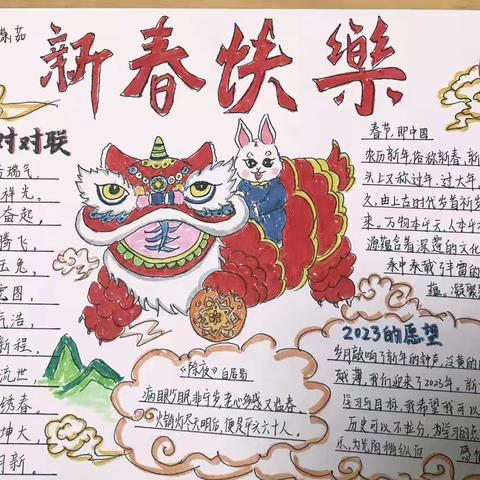 新春快樂
茹
对对联
瑞气,
祥光。
奋起,
腾飞,
玉兔,
宏图,
气浩,
新程。
流世
绣春。
坤大,
月新。
春节,即中国
农历新年,俗称新春、新
头上又称过年、过大年,
由上古时代岁首祈岁
来,万物本乎天,人本乎
源蕴含着深邃的文化
承中承载了丰富的
凝聚
2023的愿望
岁月敲响了新年的钟声,泛黄的
我们迎来了2023年。新
学习与目标,我希望我可以
历史可以不拉分,为学习的
《除夜》白居易
病眼少眠非守岁,老心多感又临春。
火销灯尽天明后,便是平头六十人。